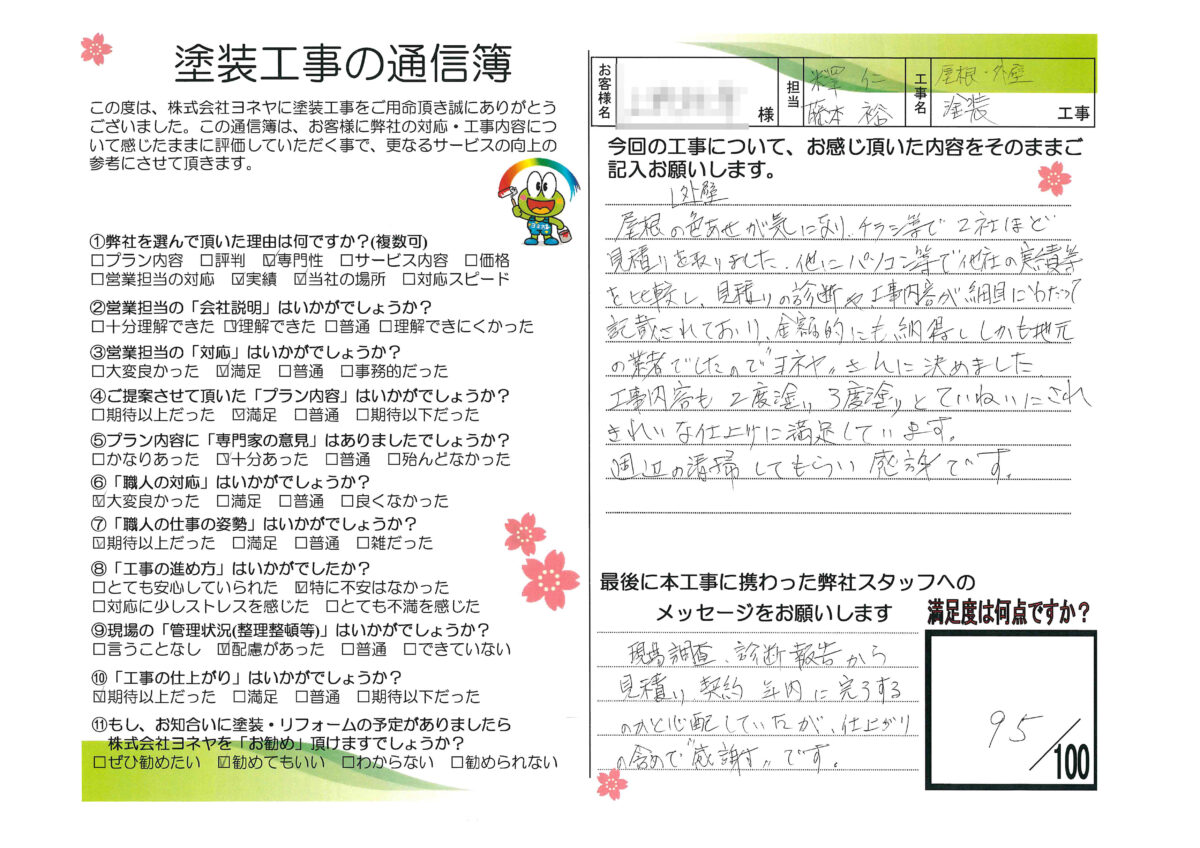 塗装工事の通信簿
この度は、株式会社ヨネヤに塗装工事をご用命頂き誠にありがとう
ございました。この通信簿は、お客様に弊社の対応・工事内容につ
いて感じたままに評価していただく事で、更なるサービスの向上の
参考にさせて頂きます。
①弊社を選んで頂いた理由は何ですか？(複数可)
□プラン内容 □評判 ☑専門性 □サービス内容 □価格
□営業担当の対応 ☑実績 ☑当社の場所 □対応スピード
②営業担当の「会社説明」はいかがでしょうか？
□十分理解できた ☑理解できた □普通 □理解できにくかった
③営業担当の「対応」はいかがでしょうか？
□大変良かった ☑満足 □普通 □事務的だった
④ご提案させて頂いた「プラン内容」はいかがでしょうか？
□期待以上だった ☑満足 □普通 □期待以下だった
⑤プラン内容に「専門家の意見」はありましたでしょうか？
□かなりあった ☑十分あった □普通 □殆んどなかった
⑥「職人の対応」はいかがでしょうか？
☑大変良かった □満足 □普通 □良くなかった
⑦「職人の仕事の姿勢」はいかがでしょうか？
☑期待以上だった □満足 □普通 □雑だった
⑧「工事の進め方」はいかがでしたか？
□とても安心していられた ☑特に不安はなかった
□対応に少しストレスを感じた □とても不満を感じた
⑨現場の「管理状況(整理整頓等)」はいかがでしょうか？
□言うことなし ☑配慮があった □普通 □できていない
⑩「工事の仕上がり」はいかがでしょうか？
☑期待以上だった □満足 □普通 □期待以下だった
⑪もし、お知合いに塗装・リフォームの予定がありましたら
株式会社ヨネヤを「お勧め」頂けますでしょうか？
□ぜひ勧めたい ☑勧めてもいい □わからない □勧められない
お客様名
様
担当
釋 仁
藤本 裕
工事名
屋根・外壁
塗装
工事
今回の工事について、お感じ頂いた内容をそのままご
記入お願いします。
外壁
屋根の色あせが気になり、チラシ等で2社ほど
見積りを取りました。他にパソコン等で他社の実績等
を比較し、見積りの診断や工事内容が細目にわたって
記載されており、金額的にも納得ししかも地元
の業者でしたので〝ヨネヤ〟さんに決めました。
工事内容も2度塗り、3度塗りとていねいにされ
きれいな仕上げに満足しています。
周辺の清掃してもらい感謝です。
最後に本工事に携わった弊社スタッフへの
メッセージをお願いします
現場調査、診断報告から
見積り、契約年内に完了する
のかと心配していたが、仕上がり
の含めで〝感謝す〟です。
満足度は何点ですか？
95/100